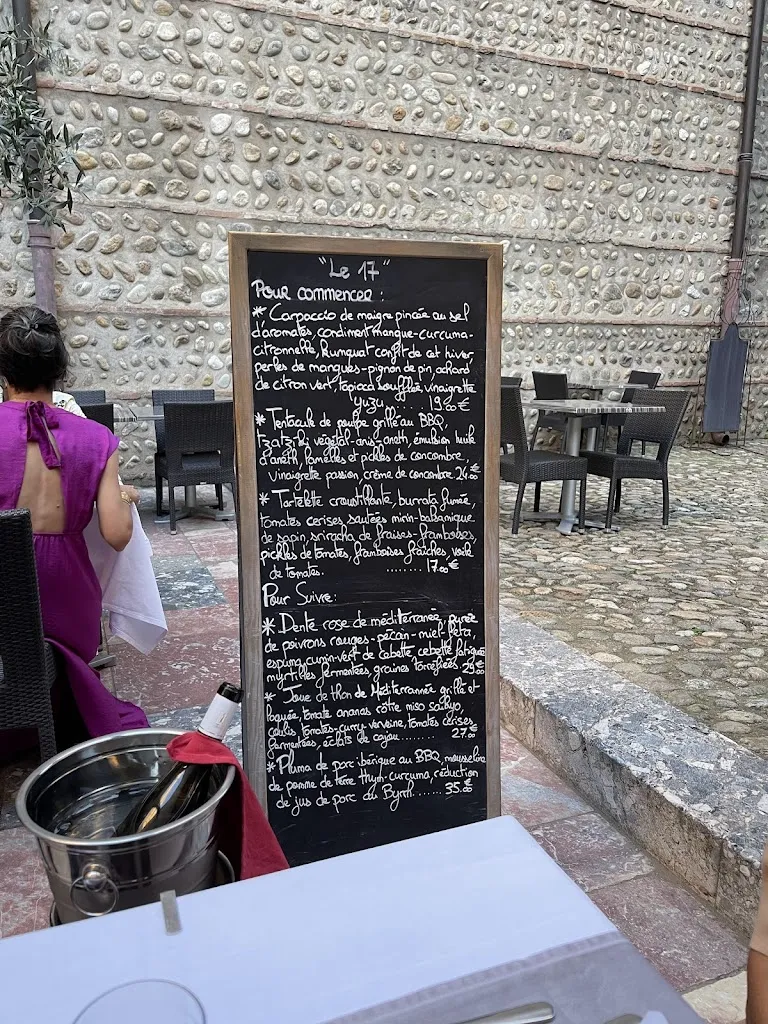 "Le 17"
Pour commencer :
* Carpaccio de maigre pincée au sel
d'aromates, condiment mangue-curcuma-
citronnelle, kumquat confit de cet hiver,
perles de mangues-pignon de pin, achard
de citron vert, tapioca soufflée, vinaigrette
yuzu ...... 19.00€
* Tentacule de poulpe grillé au BBQ,
tzatziki végétal-anis-aneth, émulsion huile
d'aneth, lamelles et pickles de concombre,
vinaigrette passion, crème de concombre 24.00€
* Tartelette croustillante, burrata fumée,
tomates cerises sautées mirin-balsamique
de sapin, sriracha de fraises-framboises,
pickles de tomates, framboises fraîches, voile
de tomates. ........ 17.00€
Pour Suivre :
* Dente rose de méditerranée, purée
de poivrons rouges-pécan-miel-feta,
espuma cumin-vert de cebette, cebette
myrtilles fermentées, graines torréfiées. 29.00€
* Joue de thon de Méditerrannée grillé et
laquée, tomate ananas rôtie miso
coulis tomates-curry verveine, tomates cerises
fermentées, éclats de cajou........ 27.00€
* Pluma de porc ibérique au BBQ, mousseline
de pomme de terre thym-curcuma, réduction
de jus de porc au Byrrh...... 35.00€